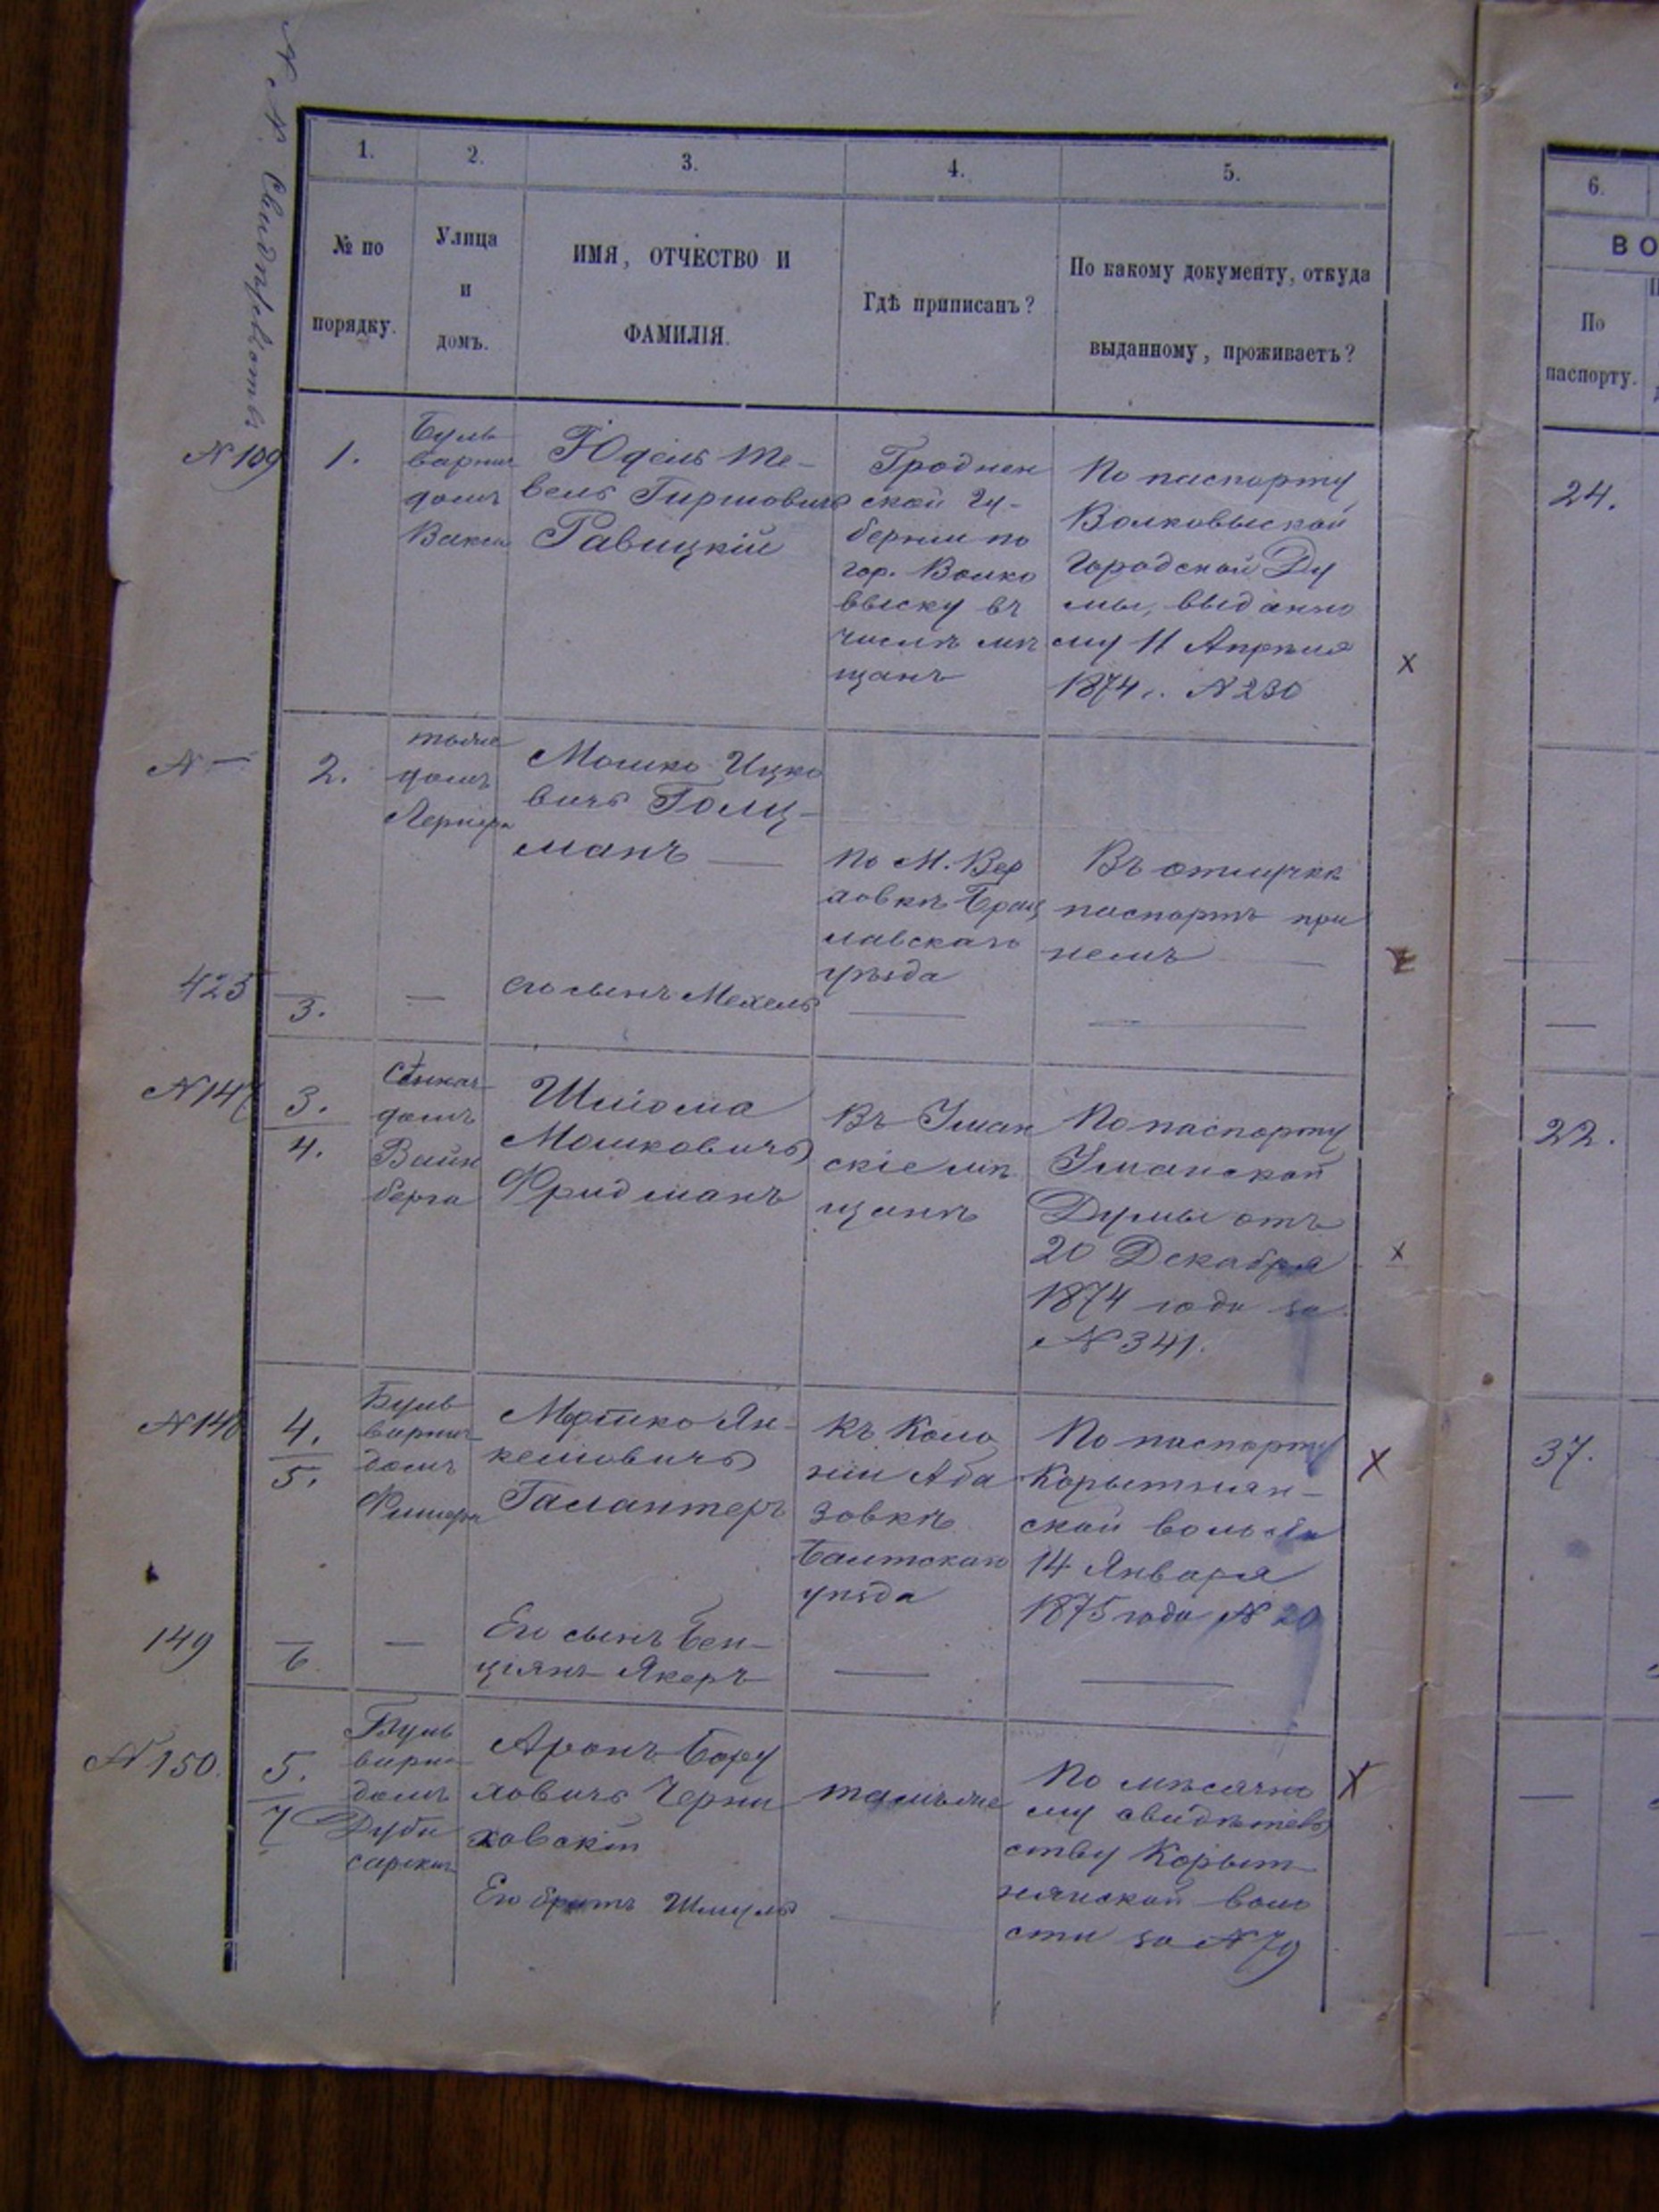 №№ Свидѣтельствъ
1. 2. 3. 4. 5. 6.
№ по
порядку.
Улица
и
домъ.
ИМЯ, ОТЧЕСТВО И
ФАМИЛІЯ.
Гдѣ приписанъ?
По какому документу, откуда
выданному, проживаетъ?
ВО
По
паспорту.
№ 109
1.
Буль
варная
домъ
Юдель Те-
вель Гиршовичъ
Равицкій
Гроднен
ской Гу-
берніи по
гор. Волко
выску въ
числѣ мѣ
щанъ
По паспорту
Волковыской
Городской Ду
мы, выданно
му 11 Апрѣля
1874 г. № 230
x
24.
№ —
2.
тоже
домъ
Лернера
Мошко Ицко
вичъ Голц-
манъ —
По М. Вер
ховкѣ Брац
лавскаго
уѣзда
Въ отлучкѣ
паспортъ при
немъ
423
3.
—
его сынъ Мехель
№ 147
3.
4.
домъ
Вайн
берга
Шліома
Мошковичъ
Фридманъ
Въ Уман
скіе мѣ
щанѣ
По паспорту
Уманской
Думы отъ
20 Декабря
1874 года за
№ 341.
x
22.
№ 148
4.
5.
Буль
варная
домъ
Фишера
Мошко Ян-
келіовичъ
Галантеръ
Къ Коло
ніи Аба
зовкѣ
Балтскаго
уѣзда
По паспорту
Корытнян-
ской волости
14 Января
1875 года № 20
x
37.
149
6
—
Его сынъ Бен-
ціянъ Якеръ
№ 150.
5.
7
Буль
варная
домъ
Дубо
сарскаго
Аронъ Бору
ховичъ Черни
ховскій
тамъже
По мѣсячно
му свидѣтель
ству Корыт-
нянской воло
сти за № 79
x
Его братъ Шмуль